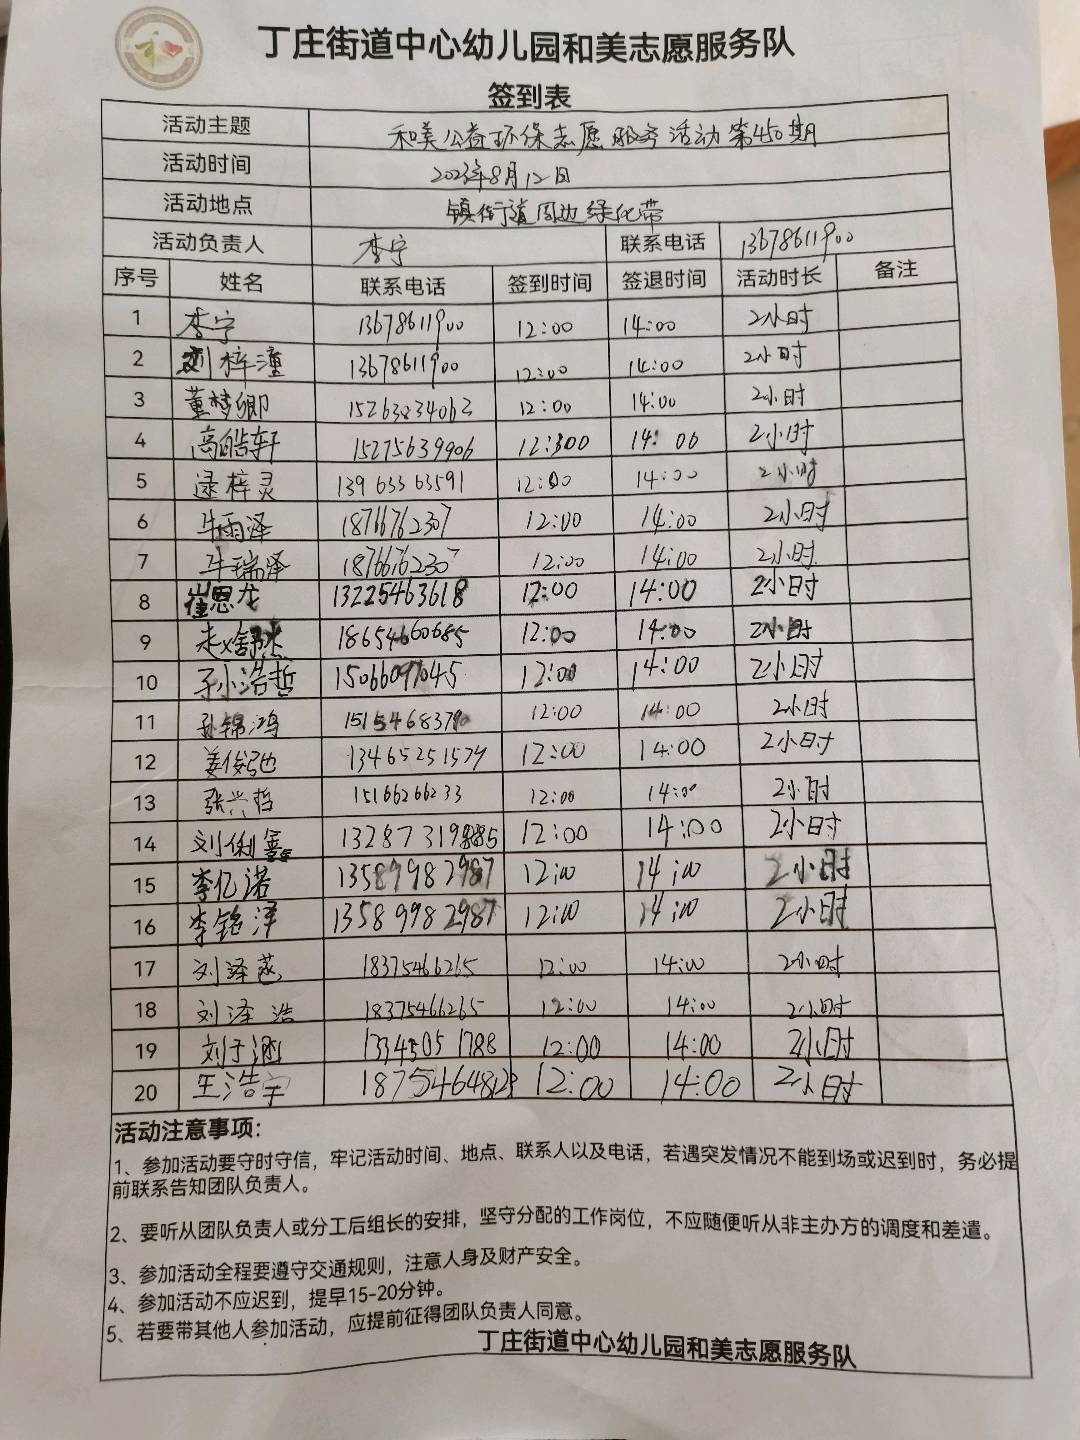 丁庄街道中心幼儿园和美志愿服务队
签到表
活动主题 和美公益环保志愿服务活动第450期
活动时间 2023年8月12日
活动地点 镇街道周边绿化带
活动负责人 李宁 联系电话 13678611900
序号 姓名 联系电话 签到时间 签退时间 活动时长 备注
1 李宁 13678611900 12:00 14:00 2小时
2 刘梓潼 13678611900 12:00 14:00 2小时
3 董梦卿 15263834062 12:00 14:00 2小时
4 高皓轩 15275639906 12:00 14:00 2小时
5 逯梓灵 13963363591 12:00 14:00 2小时
6 牛雨泽 18766762307 12:00 14:00 2小时
7 牛瑞泽 18766762307 12:00 14:00 2小时
8 崔恩龙 13225463618 12:00 14:00 2小时
9 18654660685 12:00 14:00 2小时
10 孙浩哲 15066097045 12:00 14:00 2小时
11 孙锦鸿 15154683790 12:00 14:00 2小时
12 姜俊弛 13465251579 12:00 14:00 2小时
13 张兴哲 15166266233 12:00 14:00 2小时
14 12:00 14:00 2小时
15 李亿诺 13589982987 12:00 14:00 2小时
16 李铭泽 13589982987 12:00 14:00 2小时
17 18375466265 12:00 14:00 2小时
18 刘泽浩 18375466265 12:00 14:00 2小时
19 刘子涵 13345051788 12:00 14:00 2小时
20 王浩宇 12:00 14:00 2小时
活动注意事项:
1、参加活动要守时守信，牢记活动时间、地点、联系人以及电话，若遇突发情况不能到场或迟到时，务必提
前联系告知团队负责人。
2、要听从团队负责人或分工后组长的安排，坚守分配的工作岗位，不应随便听从非主办方的调度和差遣。
3、参加活动全程要遵守交通规则，注意人身及财产安全。
4、参加活动不应迟到，提早15-20分钟。
5、若要带其他人参加活动，应提前征得团队负责人同意。
丁庄街道中心幼儿园和美志愿服务队